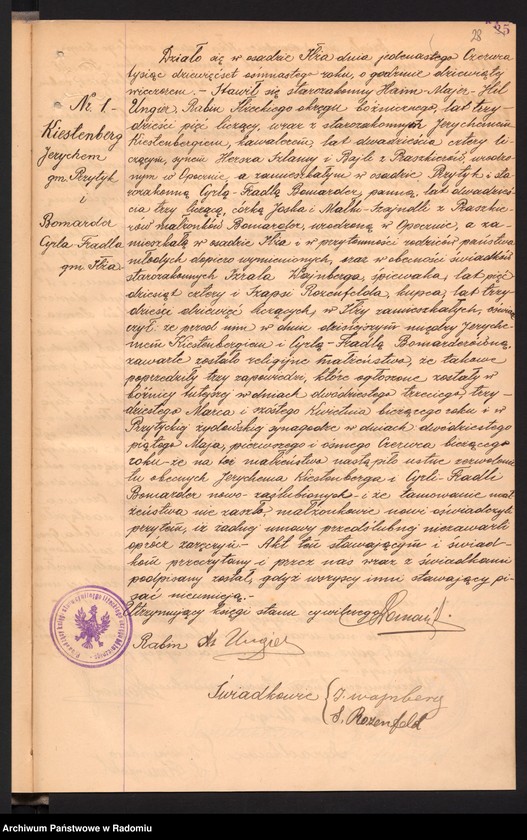 28
35
Nr. 1 -
Kiestenberg
Jerychem
gm. Przytyk
i
Bomarder
Cyrla Fradla
gm. Iłża
Działo się w osadzie Iłża dnia jedenastego Czerwca
tysiąc dziewięćset osmnastego roku, o godzinie dziewiątej
wieczorem. - Stawił się starozakonny Haim-Majer-Hil
Ungier, Rabin Iłżeckiego okręgu bóźniczego, lat trzy-
dzieści pięć liczący, wraz z starozakonnym Jerychemem
Kiestenbergiem, kawalerem, lat dwadzieścia cztery li-
czącym, synem Herszka Szlamy i Bajli z
nym w Opocznie, a zamieszkałym w osadzie Przytyk i sta-
rozakonną Cyrlą-Fradlą Bomarder, panną, lat dwadzieś-
cia trzy liczącą, córką Joska i Malki-Szajndli z
małżonków Bomarder, urodzoną w Opocznie, a za-
mieszkałą w osadzie Iłża i w przytomności rodziców państwa
młodych dopiero wymienionych, oraz w obecności świadków
starozakonnych Izrala Wajnberga, śpiewaka, lat pięć-
dziesiąt cztery i Szapsi Rozenfelda, kupca, lat trzy-
dzieści dziewięć liczących, w Iłży zamieszkałych,
czył: że przed nim w dniu dzisiejszym między Jeryche-
mem Kiestenbergiem i Cyrlą-Fradlą Bomarderówną
zawarte zostało religijne małżeństwo, że takowe
poprzedziły trzy zapowiedzi, które ogłoszone zostały w
bóżnicy tutejszej w dniach dwudziestego trzeciego, trzy-
dziestego Marca i szóstego Kwietnia bieżącego roku i w
Przytyckiej żydowskiej synagodze w dniach dwudziestego
piątego Maja, pierwszego i ósmego Czerwca bieżącego
roku - że na to małżeństwo nastąpiło ustne zezwolenie
tu obecnych Jerychema Kiestenberga i Cyrli-Fradli
Bomarder nowo-zaślubionych - i że tamowanie mał-
żeństwa nie zaszło. małżonkowie nowi oświadczyli
przytem, iż żadnej umowy przedślubnej niezawarli
oprócz zaręczyn - Akt ten stawającym i świad-
kom przeczytany i przez nas wraz z świadkami
podpisany został, gdyż wszyscy inni stawający pi-
sać nieumieją. -
Utrzymujący księgi stanu cywilnego
Rabin Ungier
Świadkowie { I. Wajnberg
S. Rozenfeld
Archiwum Państwowe w Radomiu